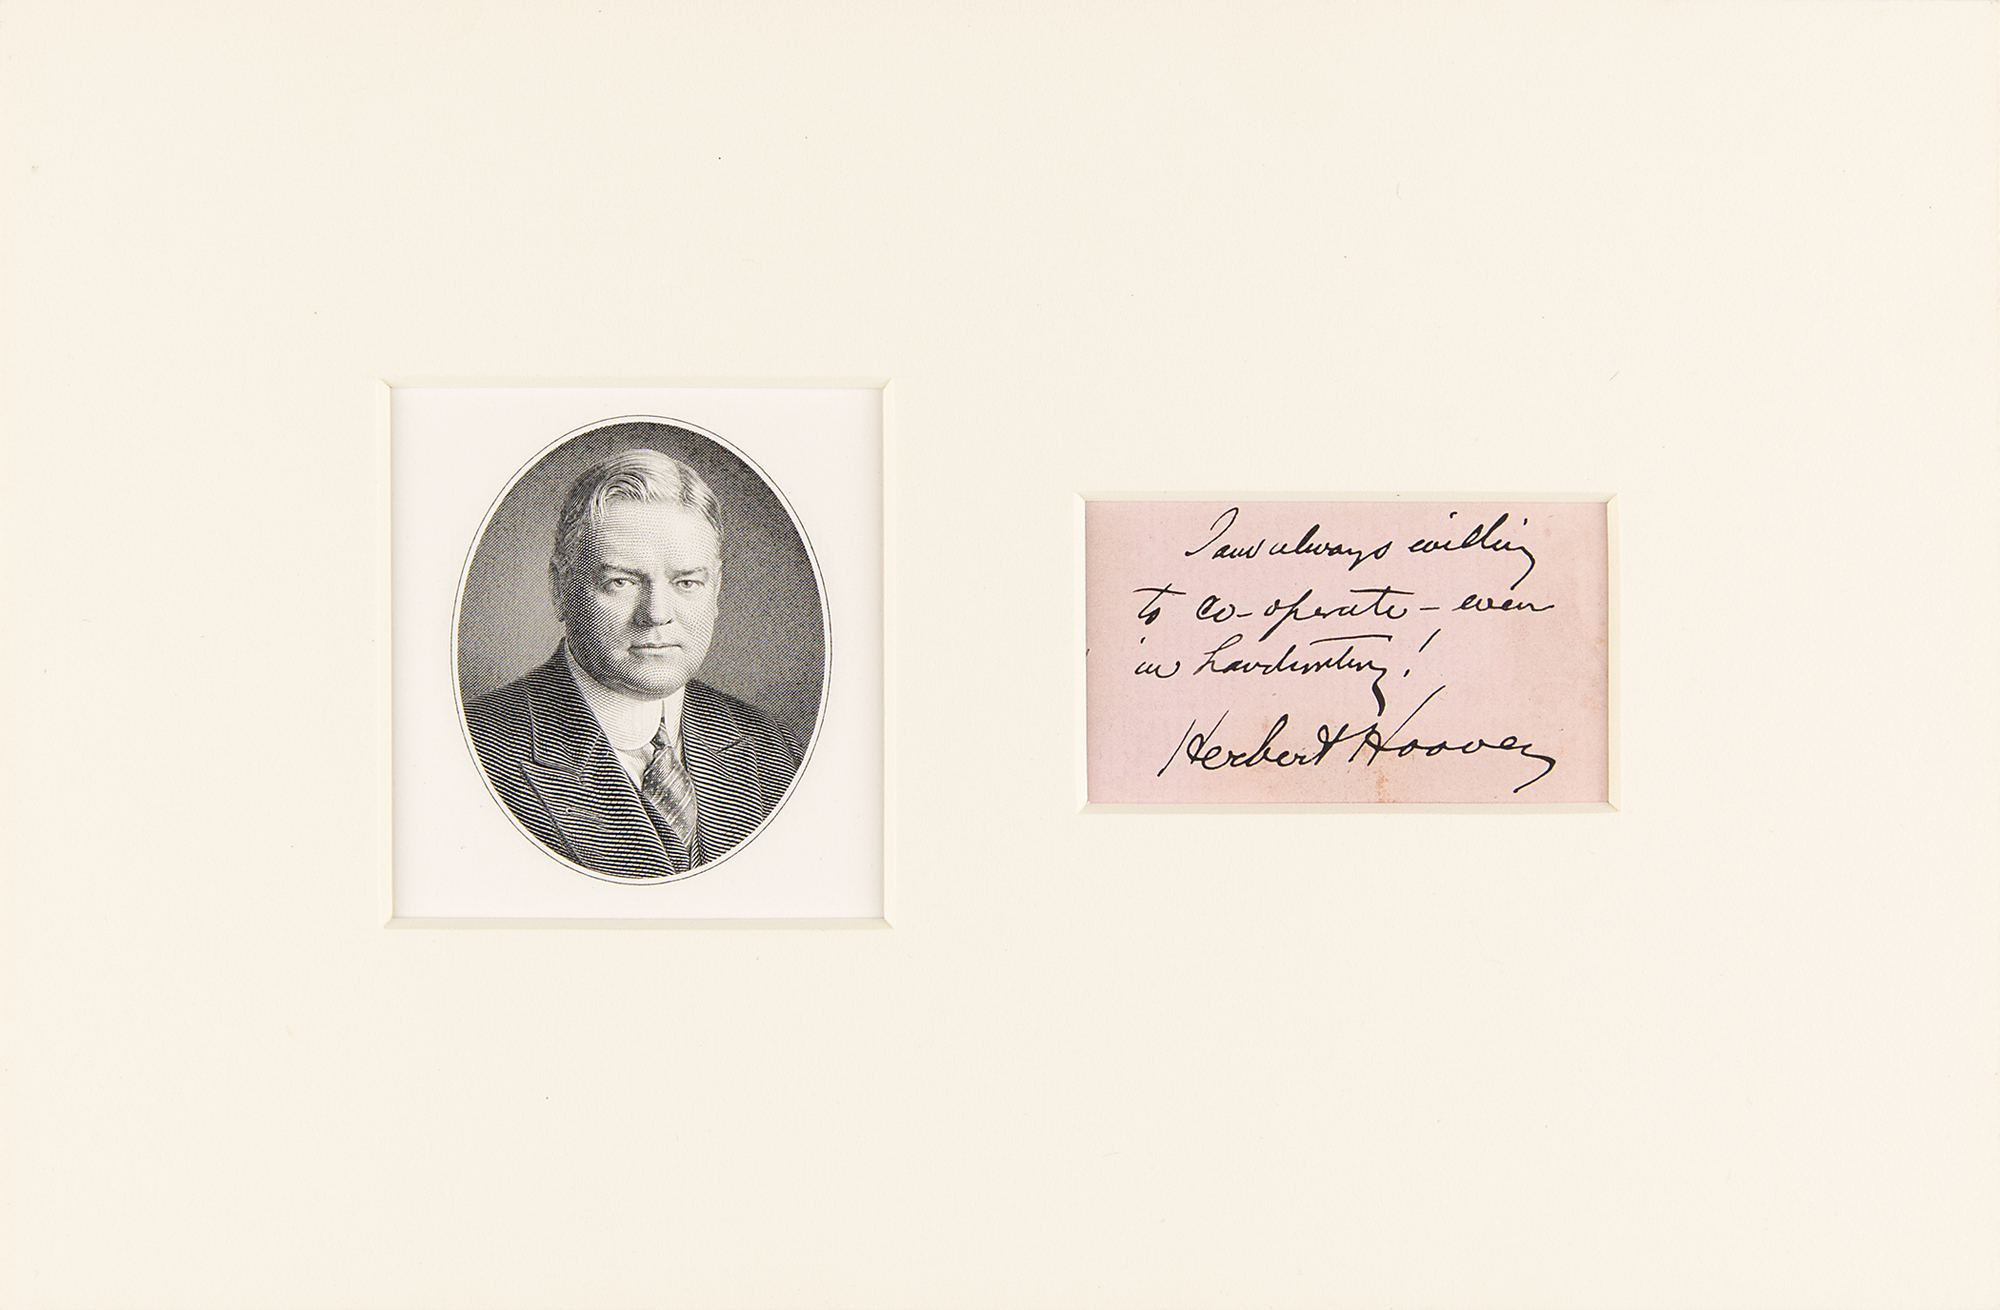 I am always willing
to co-operate - even
in handwriting!
Herbert Hoover